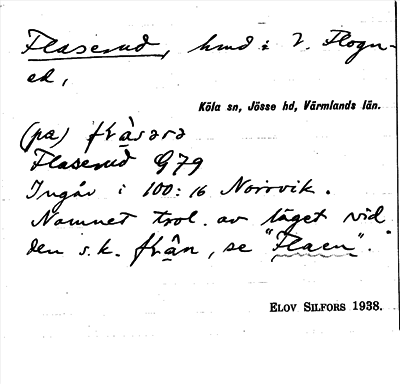 Flaserud, hmd i V. Flogn-
ed,
Köla sn, Jösse hd, Värmlands län.
(pa)
Flaserud G79
Ingår i 100:16 Norrvik.
Namnet trol. av läget vid
den s.k. , se "Flaen".
ELOV SILFORS 1938.